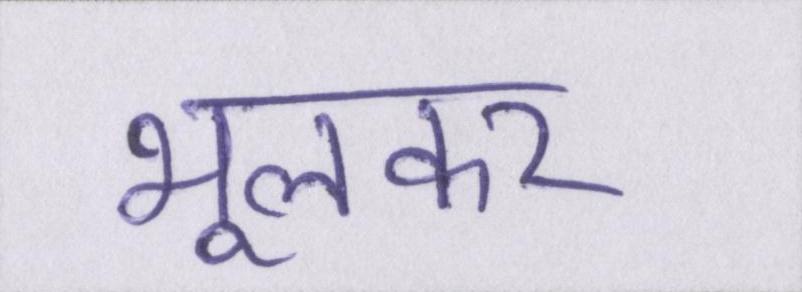 भूलकर